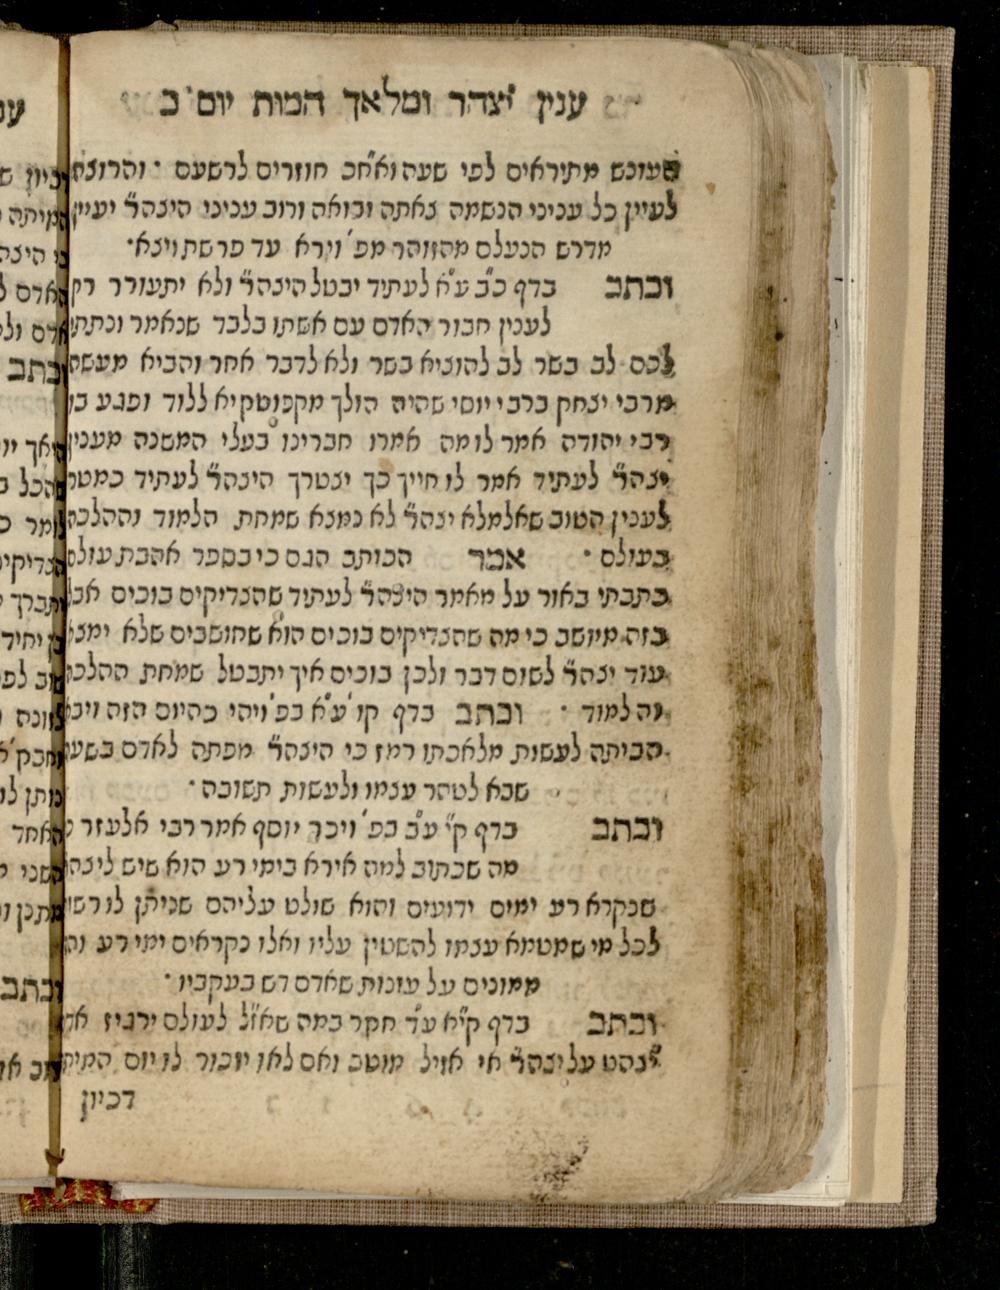 ענין יצהר ומלאך המות יום ב
שעונש מתיראים לפי שעה ואח״כ חוזרים לרשעם · והרוצה
לעיין כל עניני הנשמה גאתה ובואה ורוב עניני היצה״ר יעיין
מדרש הנעלם מהזוהר מפ׳ וירא עד פרשת ויצא·
וכתב בדף כ״ב ע״א לעתיד יבטל היצה״ר ולא יתעורר רק
לענין חבור האדם עם אשתו בלבד שנאמר ונתתי
לכם לב בשר לב להוציא בשר ולא לדבר אחר והביא מעשה
מרבי יצחק ברבי יוסי שהיה הולך מקפוטקיא ללוד ופגע בו
רבי יהודה אמר לו מה אמרו חברינו בעלי המשנה מענין
יצה״ר לעתיד אמר לו חייך כך יצטרך היצה״ר לעתיד כמטר
לענין הטוב שאלמלא יצה״ר לא נמצא שמחת הלמוד וההלכה
בעולם · אמר הכותב הגם כי בספר אהבת עולם
כתבתי באור על מאמר היצה״ר לעתיד שהצדיקים בוכים אבל
בזה מיושב כי מה שהצדיקים בוכים הוא שחושבים שלא ימצא
עוד יצה״ר לשום דבר ולכן בוכים איך יתבטל שמחת ההלכה
והלמוד · וכתב בדף קו ע״א בפ׳ ויהי כהיום הזה ויבא
הביתה לעשות מלאכתו רמז כי היצה״ר מפתה לאדם בשעה
שבא לטהר עצמו ולעשות תשובה·
וכתב בדף ק״י ע״ב בפ׳ ויכר יוסף אמר רבי אלעזר
מה שכתוב למה אירא בימי רע הוא שיש ליצה
שנקרא רע ימים ידועים והוא שולט עליהם שניתן לו רשו
לכל מי שמטמא עצמו להשטין עליו ואלו נקראים ימי רע וה
ממונים על עונות שאדם דש בעקביו·
וכתב בדף קי״א ע״ד חקר במה שאז״ל לעולם ירגיז אד
יצהט על יצה״ר אי אזיל מוטב ואם לאו יזכור לו יום המית
דכיון